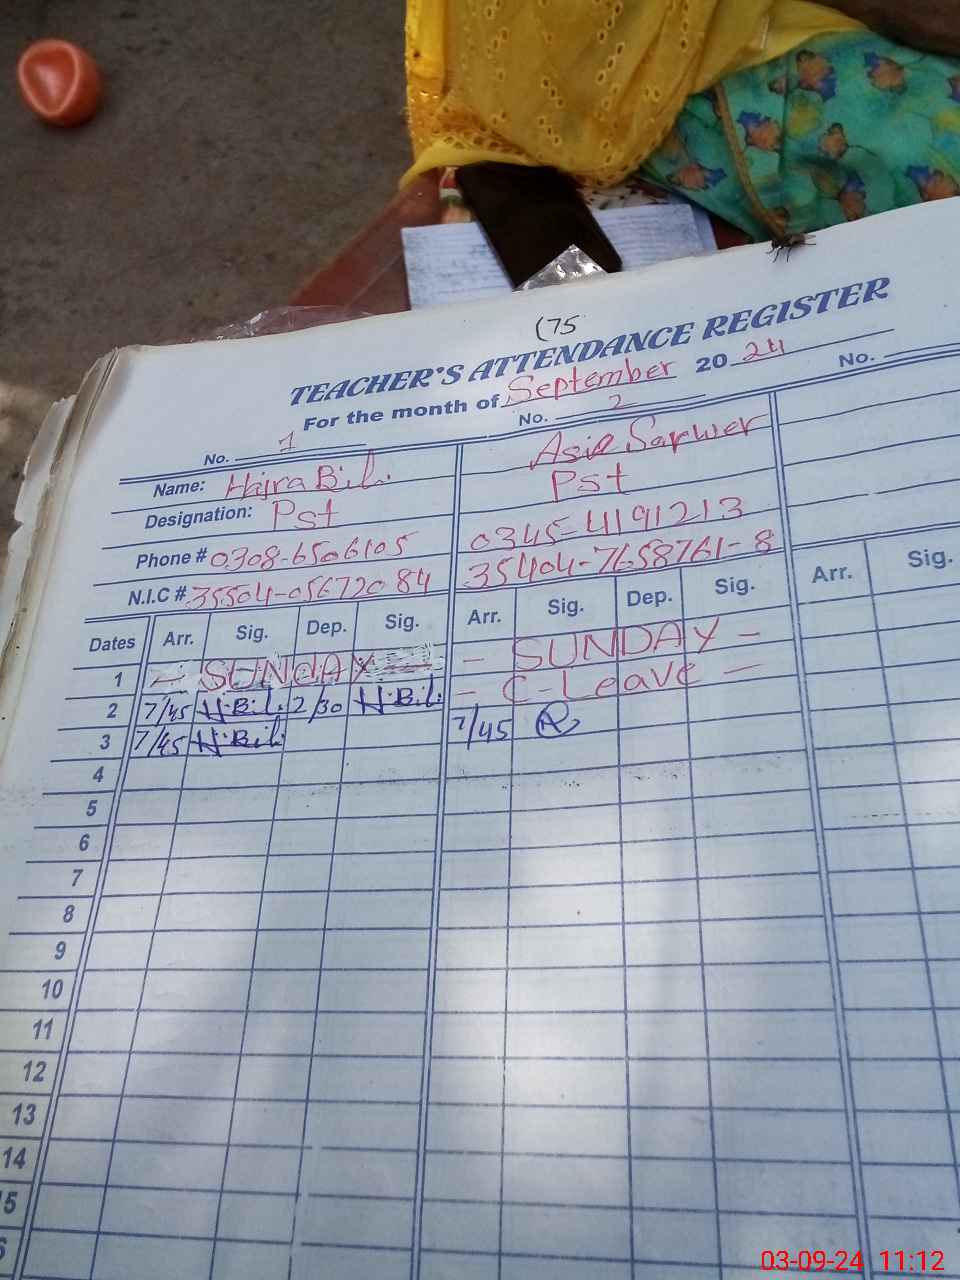 (75
TEACHER'S ATTENDANCE REGISTER
For the month of September 2024
No. 1 No. 2 No.
Name: Hajra Bibi Asif Sarwer
Designation: Pst Pst
Phone # 0308-6506105 0345-4191213
N.I.C # 35504-05672084 35404-7658761-8
Dates Arr. Sig. Dep. Sig. Arr. Sig. Dep. Sig. Arr. Sig.
1 - SUNDAY - - SUNDAY -
2 7/45 H.Bibi 2/30 H.Bibi - C-Leave -
3 7/45 H.Bibi 7/45
4
5
6
7
8
9
10
11
12
13
14
15
6
03-09-24 11:12